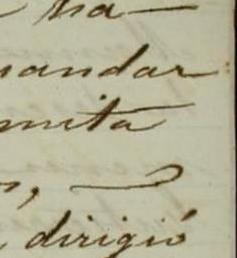 ha
mandar
mita
dirigió